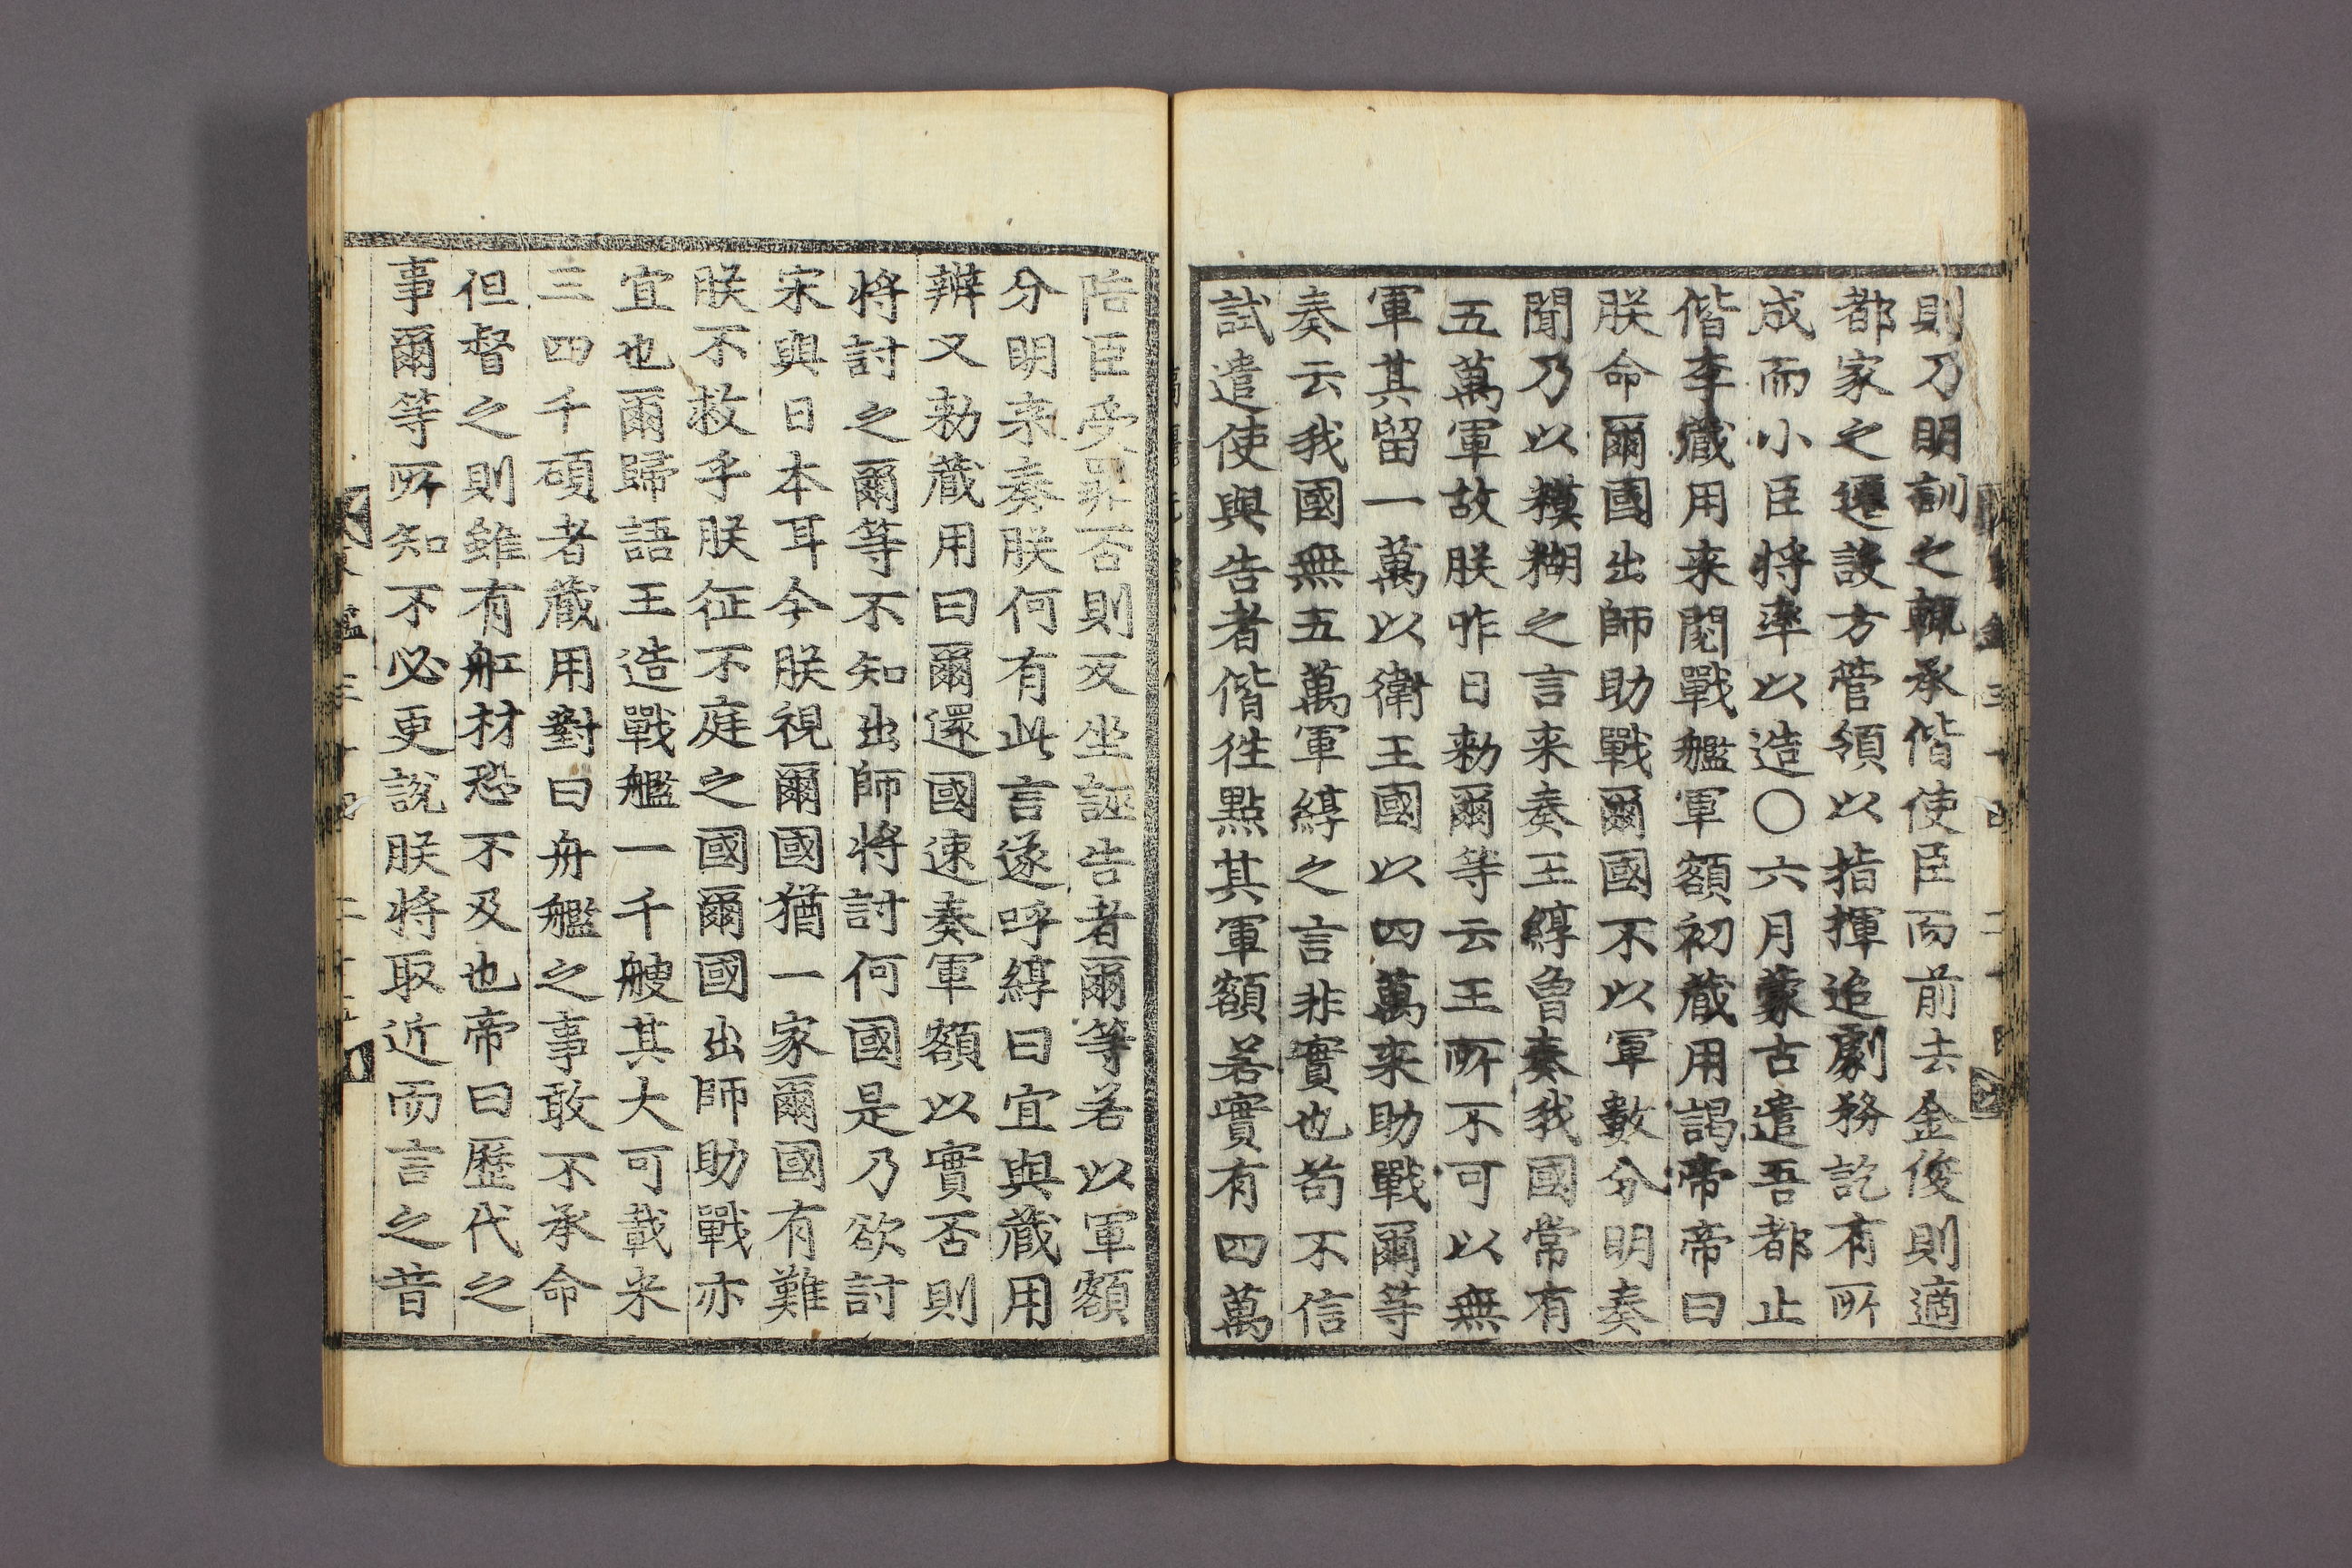 則乃明訓之輒承偕使臣而前去金俊則適
都家之遷設方管領以指揮追劇務訖有所
成而小臣將率以造〇六月蒙古遣吾都止
偕李藏用来閱戰艦軍額初藏用謁帝帝曰
朕命爾國出師助戰爾國不以軍數分明奏
聞乃以糢糊之言来奏王綧曾奏我國常有
五萬軍故朕昨日勑爾等云王所不可以無
軍其留一萬以衛王國以四萬来助戰爾等
奏云我國無五萬軍綧之言非實也苟不信
試遣使與告者偕徃點其軍額若實有四萬
陪臣受罪否則反坐誣告者爾等若以軍額
分明来奏朕何有此言遂呼綧曰宜與藏用
辨又勑藏用曰爾還國速奏軍額以實否則
將討之爾等不知出師將討何國是乃欲討
宋與日本耳今朕視爾國猶一家爾國有難
朕不救乎朕征不庭之國爾國出師助戰亦
宜也爾歸語王造戰艦一千艘其大可載米
三四千碩者藏用對曰舟艦之事敢不承命
但督之則雖有舡材恐不及也帝曰歷代之
事爾等所知不必更說朕將取近而言之昔